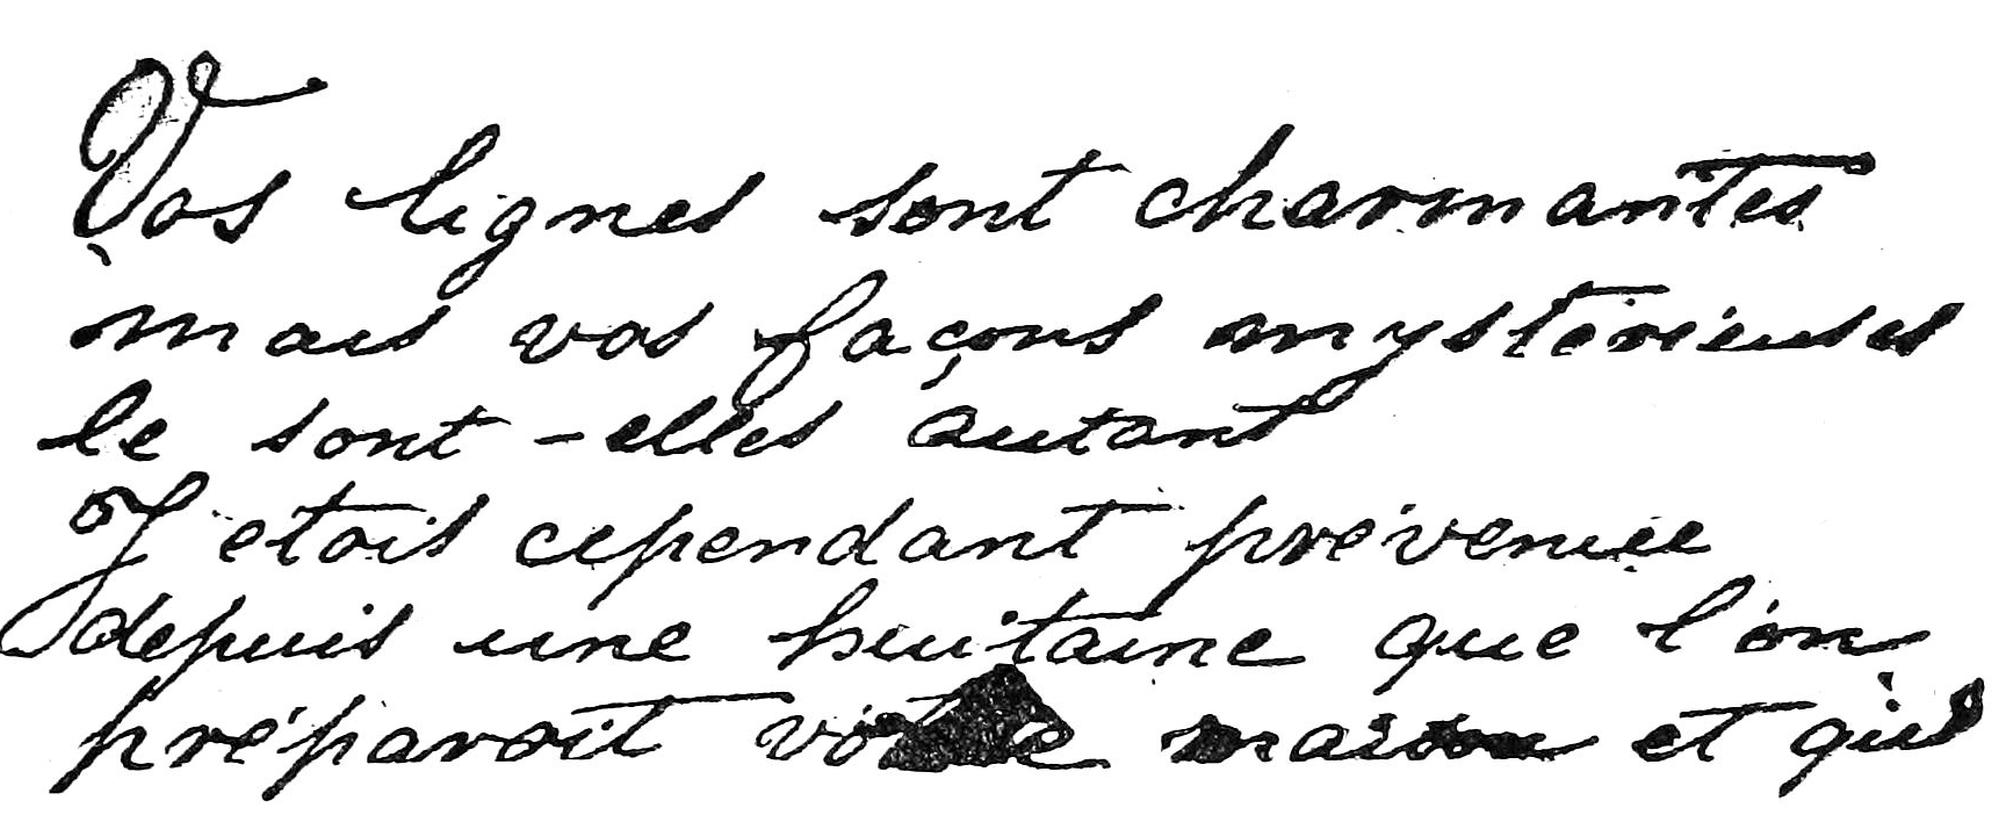 Vos lignes sont charmantes
mais vos façons mystérieuses
le sont-elles autant
J'étois cependant prévenue
depuis une huitaine que l'on
préparoit votre maison et qu'il